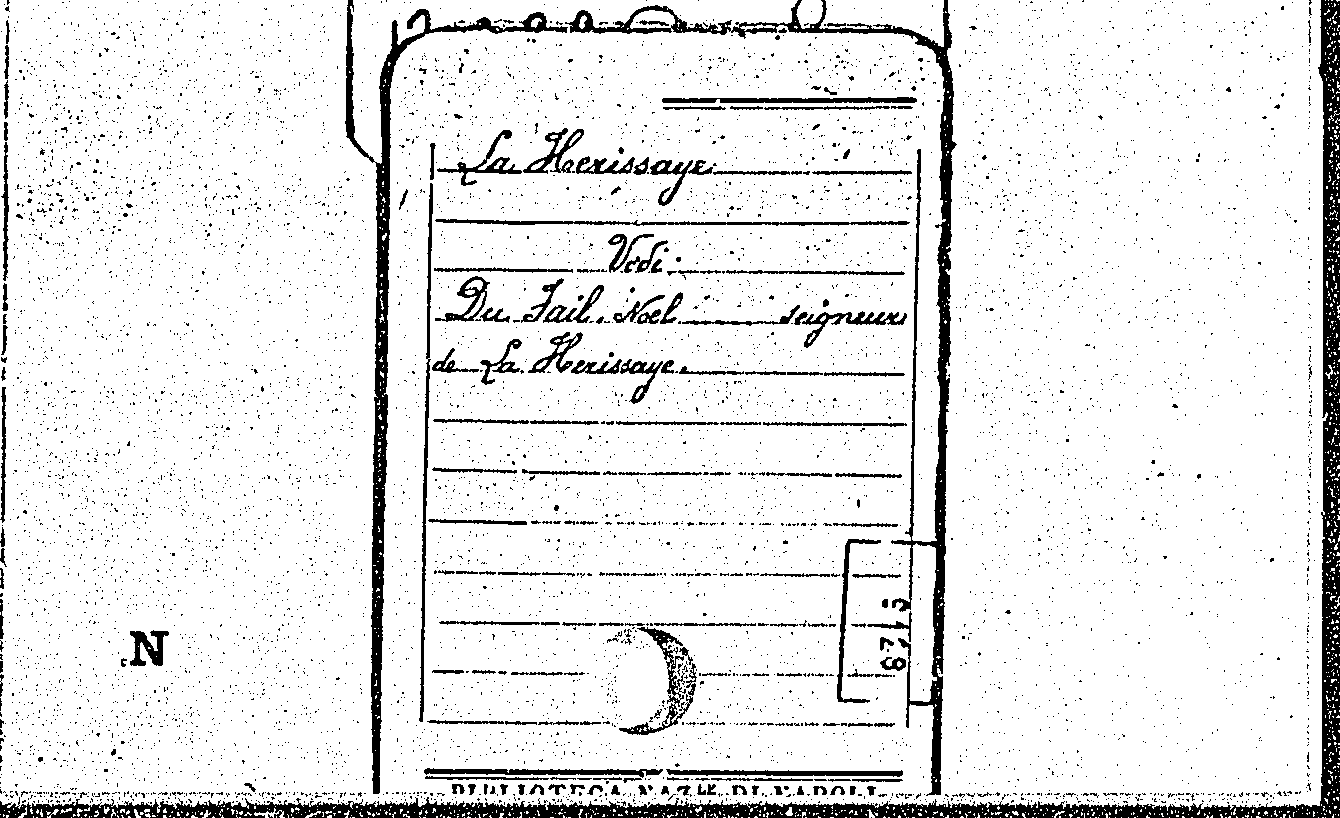 La Herissaye
Vedi
Du Fail, Noel seigneur
de La Herissaye.
N
BIBLIOTECA NAZLE DI NAPOLI